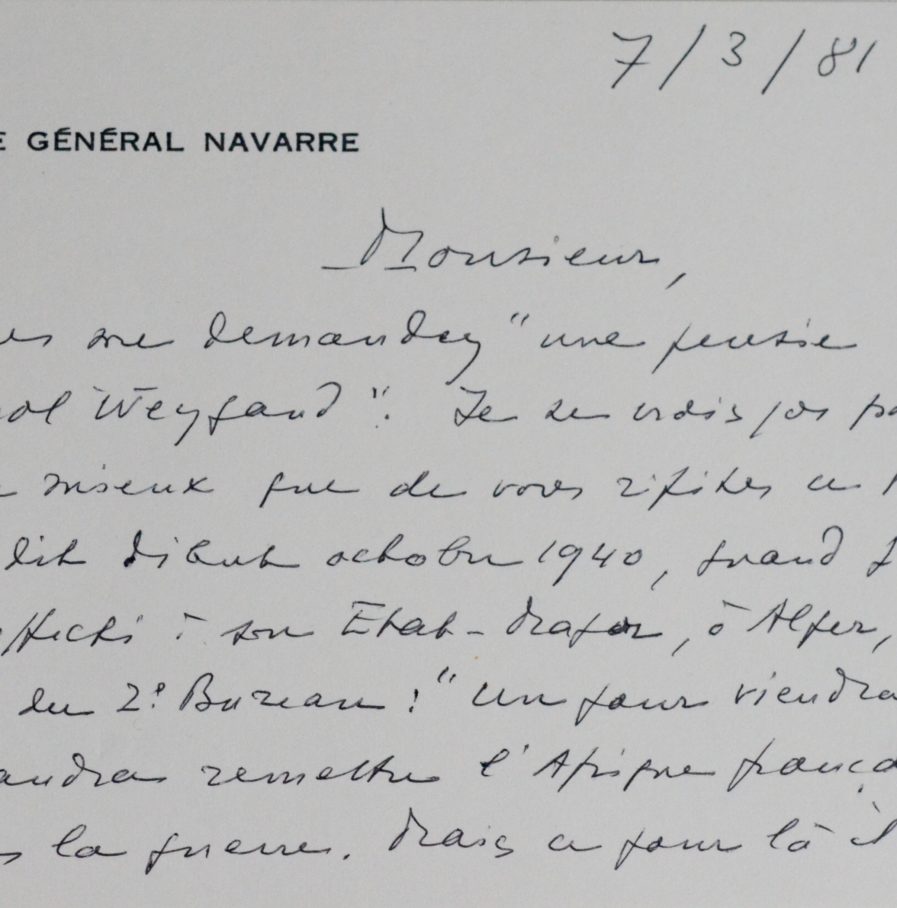 7/3/81
E GÉNÉRAL NAVARRE
Monsieur,
me demandez "une pensée
Weygand". Je ne crois pas
mieux que de vous répéter ce
dit début octobre 1940, quand
affecté à son Etat-Major, à Alger,
du 2e Bureau : "Un jour viendra
faudra remettre l'Afrique
la guerre. Mais ce jour là il